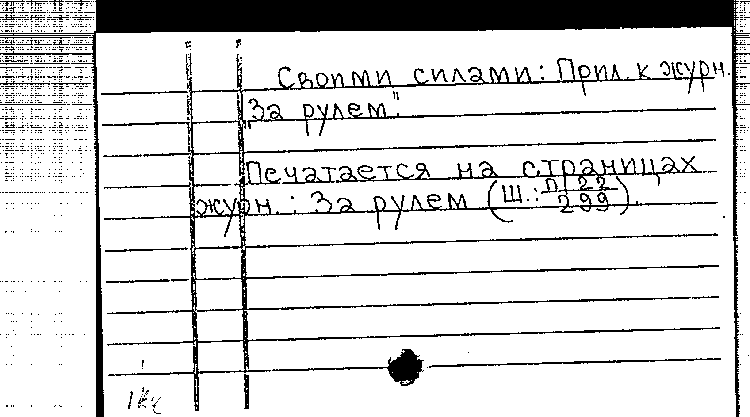 Своими силами: Прил. к журн.
„За рулем".
Печатается на страницах
журн.: За рулем (Ш.: П 22
299).